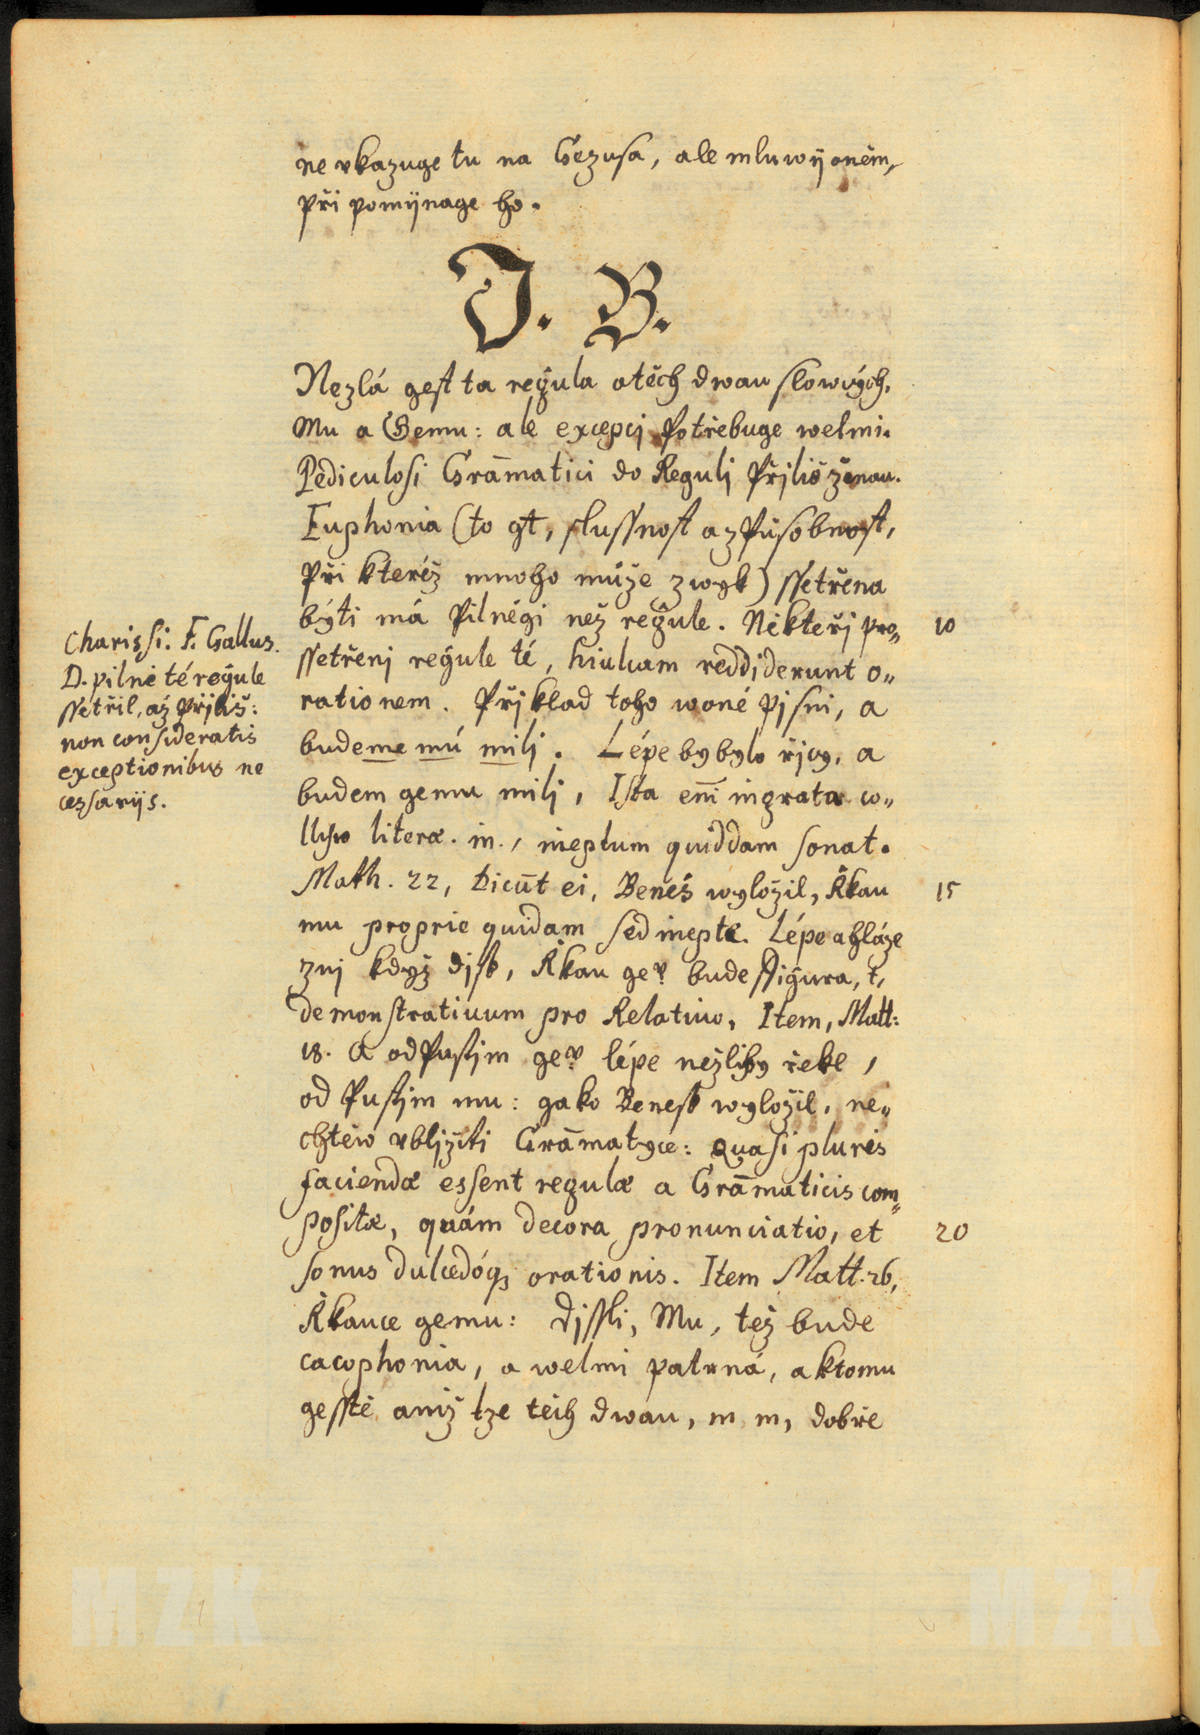 ne vkazuge tu na Gezusa, ale mluwij oněm,
při pomijnage ho.
J. B.
Nezlá gest ta regula otěch dwau slowých,
Mu a Gemu: ale excepcj potřebuge welmi.
Pediculosi Grāmatici do Regulj přjliš ženau.
Euphonia (to gt, slussnost a způsobnost,
při kteréž mnoho může zwyk) ssetřena
býti má pilněgi než regule. Někteřj pro„
10
ssetřenj regule té, hiulcam reddiderunt o„
rationem. Přjklad toho woné pjsni, a
budeme mú milj. Lépe by bylo řjcy, a
budem gemu milj, Ista em̄ ingrata co„
llisio literæ. m., ineptum quiddam sonat.
Math. 22, Dicūt ei, Beneš wyložil, Řkau
15
mu proprie quidam sed inepte. Lépe a hláze
znj když djsſ, Řkau geͮ bude ffigura, t,
demonstratiuum pro Relatiuo, Item, Matt:
18. A odpustjm geͮ lépe nežliby řekl,
odpustjm mu: gako Benesſ wyložil, ne„
chtěw vbljžiti Grāmatyce: quasi pluris
faciendæ essent regulæ a Grāmaticis com„
positæ, quám decora pronunciatio, et
20
sonus dulcedóq₃ orationis. Item Matt. 26,
Řkauce gemu: Djssli, Mu, též bude
cacophonia, a welmi patrná, a ktomu
gesstě aniž lze těch dwau, m m, dobře
Charissi: F. Gallus.
D. pilně té regule
ssetřil, až přjliš:
non consideratis
exceptionibus ne
cessarijs.
MZK
MZK